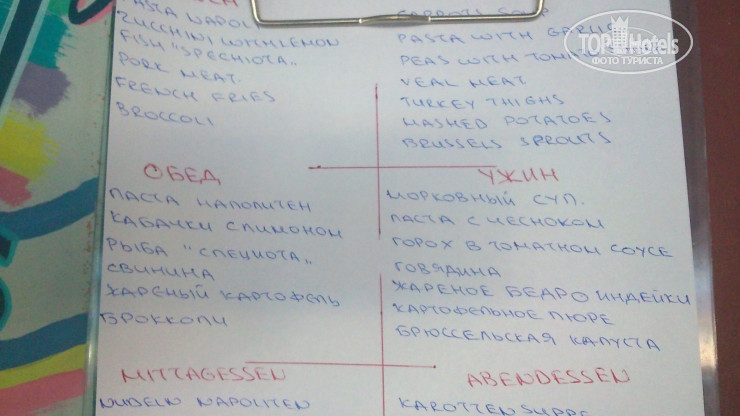 PASTA NAPOLI
ZUCCHINI WITH LEMON
FISH "SPECHIOTA"
PORK MEAT.
FRENCH FRIES
BROCCOLI
CARROTS SOUP
PASTA WITH GARLIC
PEAS WITH
VEAL MEAT
TURKEY THIGHS
MASHED POTATOES
BRUSSELS SPROUTS
TOPHotels
ФОТО ТУРИСТА
ОБЕД
ПАСТА НАПОЛИТЕН
КАБАЧКИ С ЛИМОНОМ
РЫБА "СПЕЦИОТА"
СВИНИНА
ЖАРЕНЫЙ КАРТОФЕЛЬ
БРОККОЛИ
УЖИН
МОРКОВНЫЙ СУП.
ПАСТА С ЧЕСНОКОМ
ГОРОХ В ТОМАТНОМ СОУСЕ
ГОВЯДИНА
ЖАРЕНОЕ БЕДРО ИНДЕЙКИ
КАРТОФЕЛЬНОЕ ПЮРЕ
БРЮССЕЛЬСКАЯ КАПУСТА
MITTAGESSEN
NUDELN NAPOLITEN
ABENDESSEN
KAROTTEN SUPPE